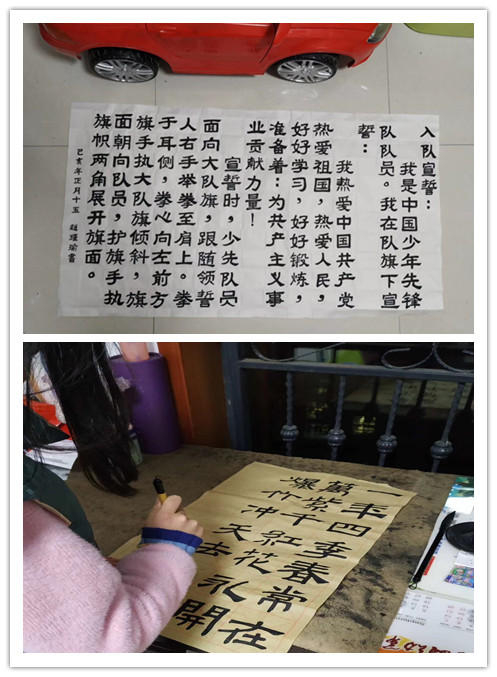 入队宣誓：
我是中国少年先锋
队队员。我在队旗下宣
誓：
我热爱中国共产党
热爱祖国，热爱人民，
好好学习，好好锻炼，
准备着：为共产主义事
业贡献力量！
宣誓时，少先队员
面向大队旗，跟随领誓
人右手举拳至肩上。拳
于耳侧，拳心向左前方
旗手执大队旗倾斜，旗
面朝向队员，护旗手执
旗帜两角展开旗面。
己亥年正月十五 赵瑾瑜书
一年四季春常在
萬紫千紅花永開
爆竹冲天去